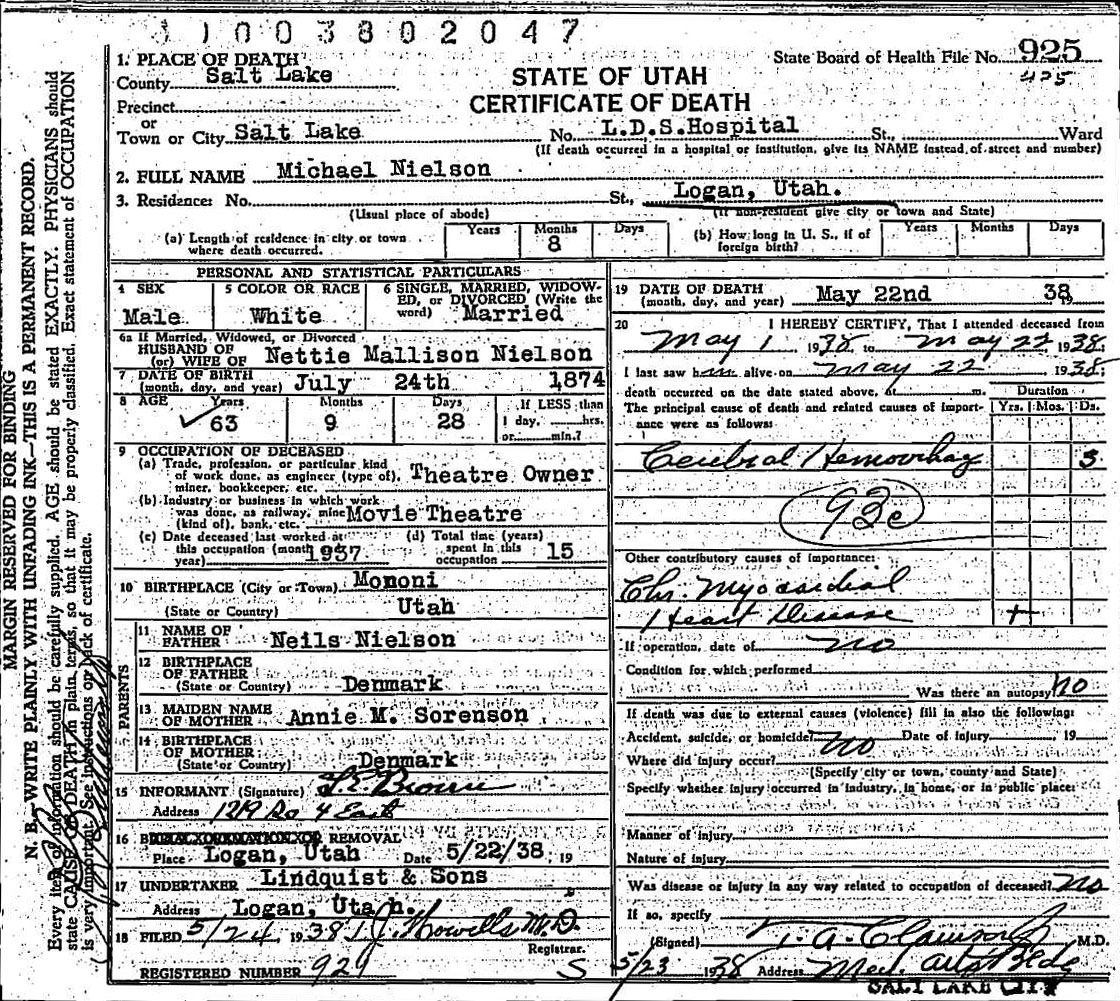 1 1 0 0 3 8 0 2 0 4 7
State Board of Health File No. 925
425
1. PLACE OF DEATH
County Salt Lake
STATE OF UTAH
CERTIFICATE OF DEATH
Precinct
or
Town or City Salt Lake No. L.D.S.Hospital St., Ward
(If death occurred in a hospital or institution, give its NAME instead of street and number)
2. FULL NAME Michael Nielson
3. Residence: No. St., Logan, Utah.
(Usual place of abode) (If non-resident give city or town and State)
(a) Length of residence in city or town where death occurred. Years Months 8 Days
(b) How long in U. S., if of foreign birth? Years Months Days
PERSONAL AND STATISTICAL PARTICULARS
4 SEX Male
5 COLOR OR RACE White
6 SINGLE, MARRIED, WIDOWED, or DIVORCED (Write the word) Married
6a If Married, Widowed, or Divorced
HUSBAND OF
(or) WIFE OF Nettie Mallison Nielson
7 DATE OF BIRTH
(month, day, and year) July 24th 1874
8 AGE Years 63 Months 9 Days 28
If LESS than 1 day, hrs. or min.?
9 OCCUPATION OF DECEASED
(a) Trade, profession, or particular kind
of work done, as engineer (type of), Theatre Owner
miner, bookkeeper, etc.
(b) Industry or business in which work
was done, as railway, mine Movie Theatre
(kind of), bank, etc.
(c) Date deceased last worked at this occupation (month year) 1937
(d) Total time (years) spent in this occupation 15
10 BIRTHPLACE (City or Town) Mononi
(State or Country) Utah
PARENTS
11 NAME OF FATHER Neils Nielson
12 BIRTHPLACE OF FATHER
(State or Country) Denmark
13 MAIDEN NAME OF MOTHER Annie M. Sorenson
14 BIRTHPLACE OF MOTHER
(State or Country) Denmark
15 INFORMANT (Signature) Brown
Address 1219 So 4 East
16 REMOVAL
Place Logan, Utah Date 5/22/38, 19
17 UNDERTAKER Lindquist & Sons
Address Logan, Uta h.
18 FILED 5/24 1938 J. Howells M.D.
Registrar.
REGISTERED NUMBER 929 S
19 DATE OF DEATH
(month, day, and year) May 22nd 38,
20 I HEREBY CERTIFY, That I attended deceased from
May 1 1938 to May 22 1938
I last saw him alive on May 22 1938;
death occurred on the date stated above, at m.
Duration
The principal cause of death and related causes of importance were as follows: Yrs. Mos. Ds.
Cerebral Hemorrhag 3
Other contributory causes of importance:
Chr. Myocardial
Heart Disease +
If operation, date of no
Condition for which performed
Was there an autopsy no
If death was due to external causes (violence) fill in also the following:
Accident, suicide, or homicide? no Date of injury , 19
Where did injury occur?
(Specify city or town, county and State)
Specify whether injury occurred in industry, in home, or in public place:
Manner of injury
Nature of injury
Was disease or injury in any way related to occupation of deceased? no
If so, specify
(Signed) T. A. Clawson Jr M.D.
5/23 1938 Address Med. Arts Bldg
SALT LAKE CITY
MARGIN RESERVED FOR BINDING
N. B.—WRITE PLAINLY WITH UNFADING INK—THIS IS A PERMANENT RECORD.
Every item of information should be carefully supplied. AGE should be stated EXACTLY. PHYSICIANS should
state CAUSE OF DEATH in plain terms, so that it may be properly classified. Exact statement of OCCUPATION
is very important. See instructions on back of certificate.